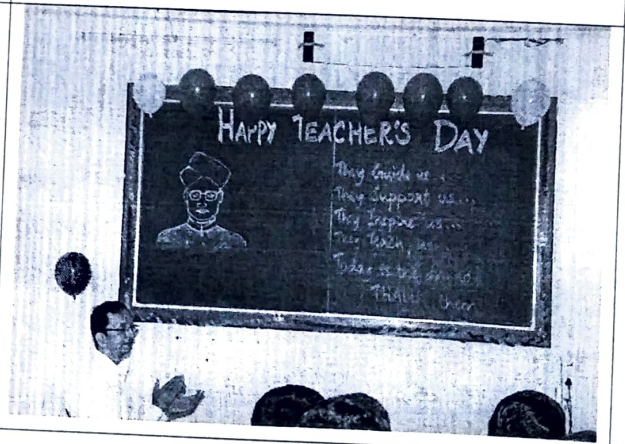 HAPPY TEACHER'S DAY
They Guide us...
They Support us...
They Inspire us...
They Teach us
Today is the
THANK them